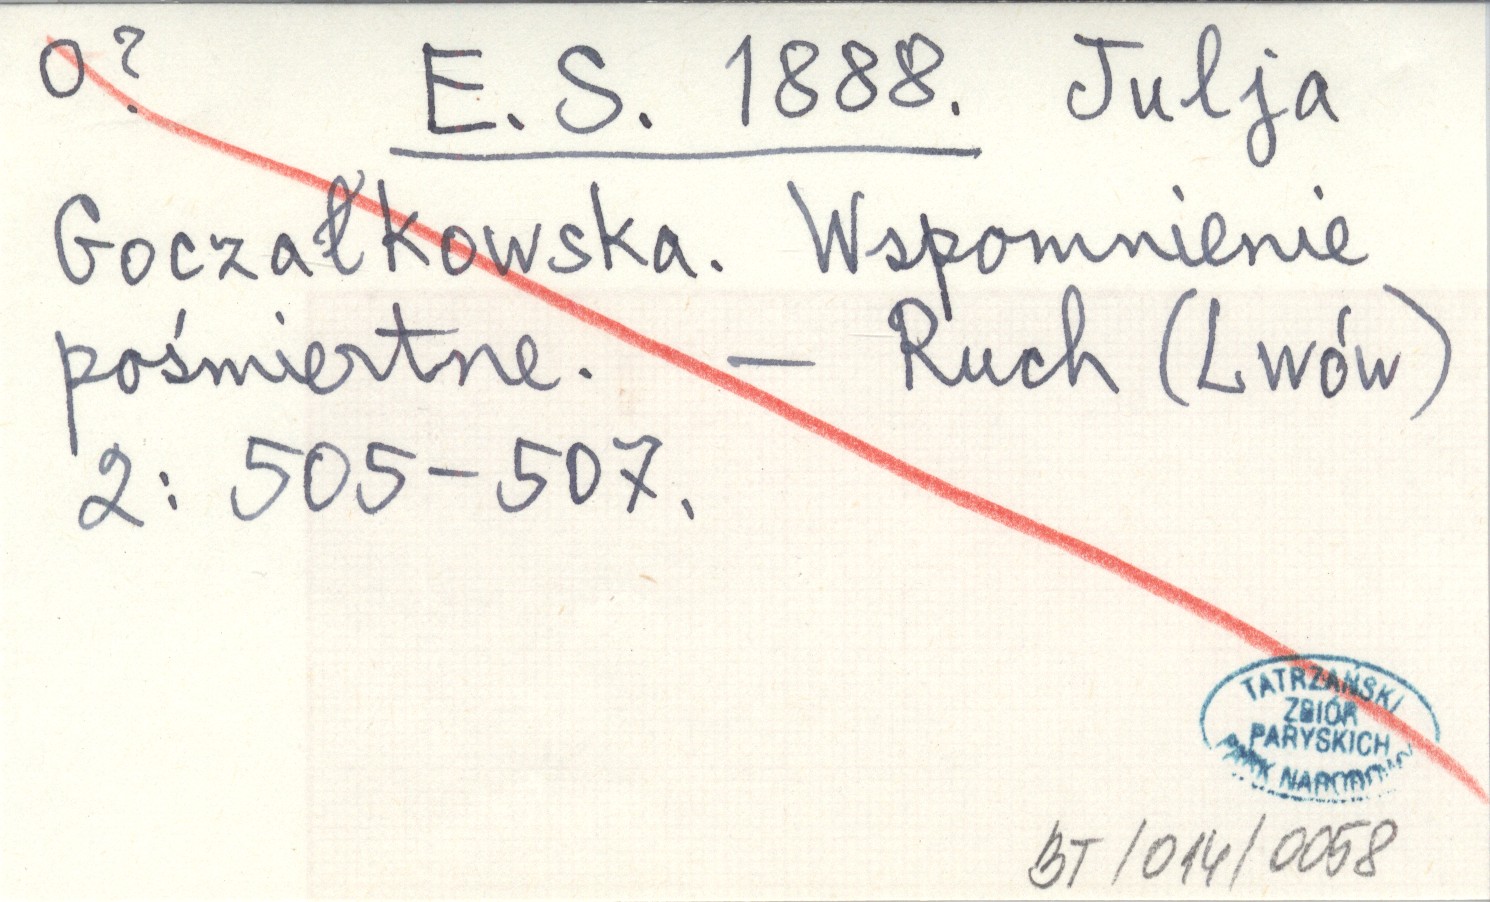 O? E. S. 1888. Julja
Goczałkowska. Wspomnienie
pośmiertne. — Ruch (Lwów)
2: 505–507.
TATRZAŃSKI
ZBIÓR
PARYSKICH
PARK NARODOWY
BT/014/0058